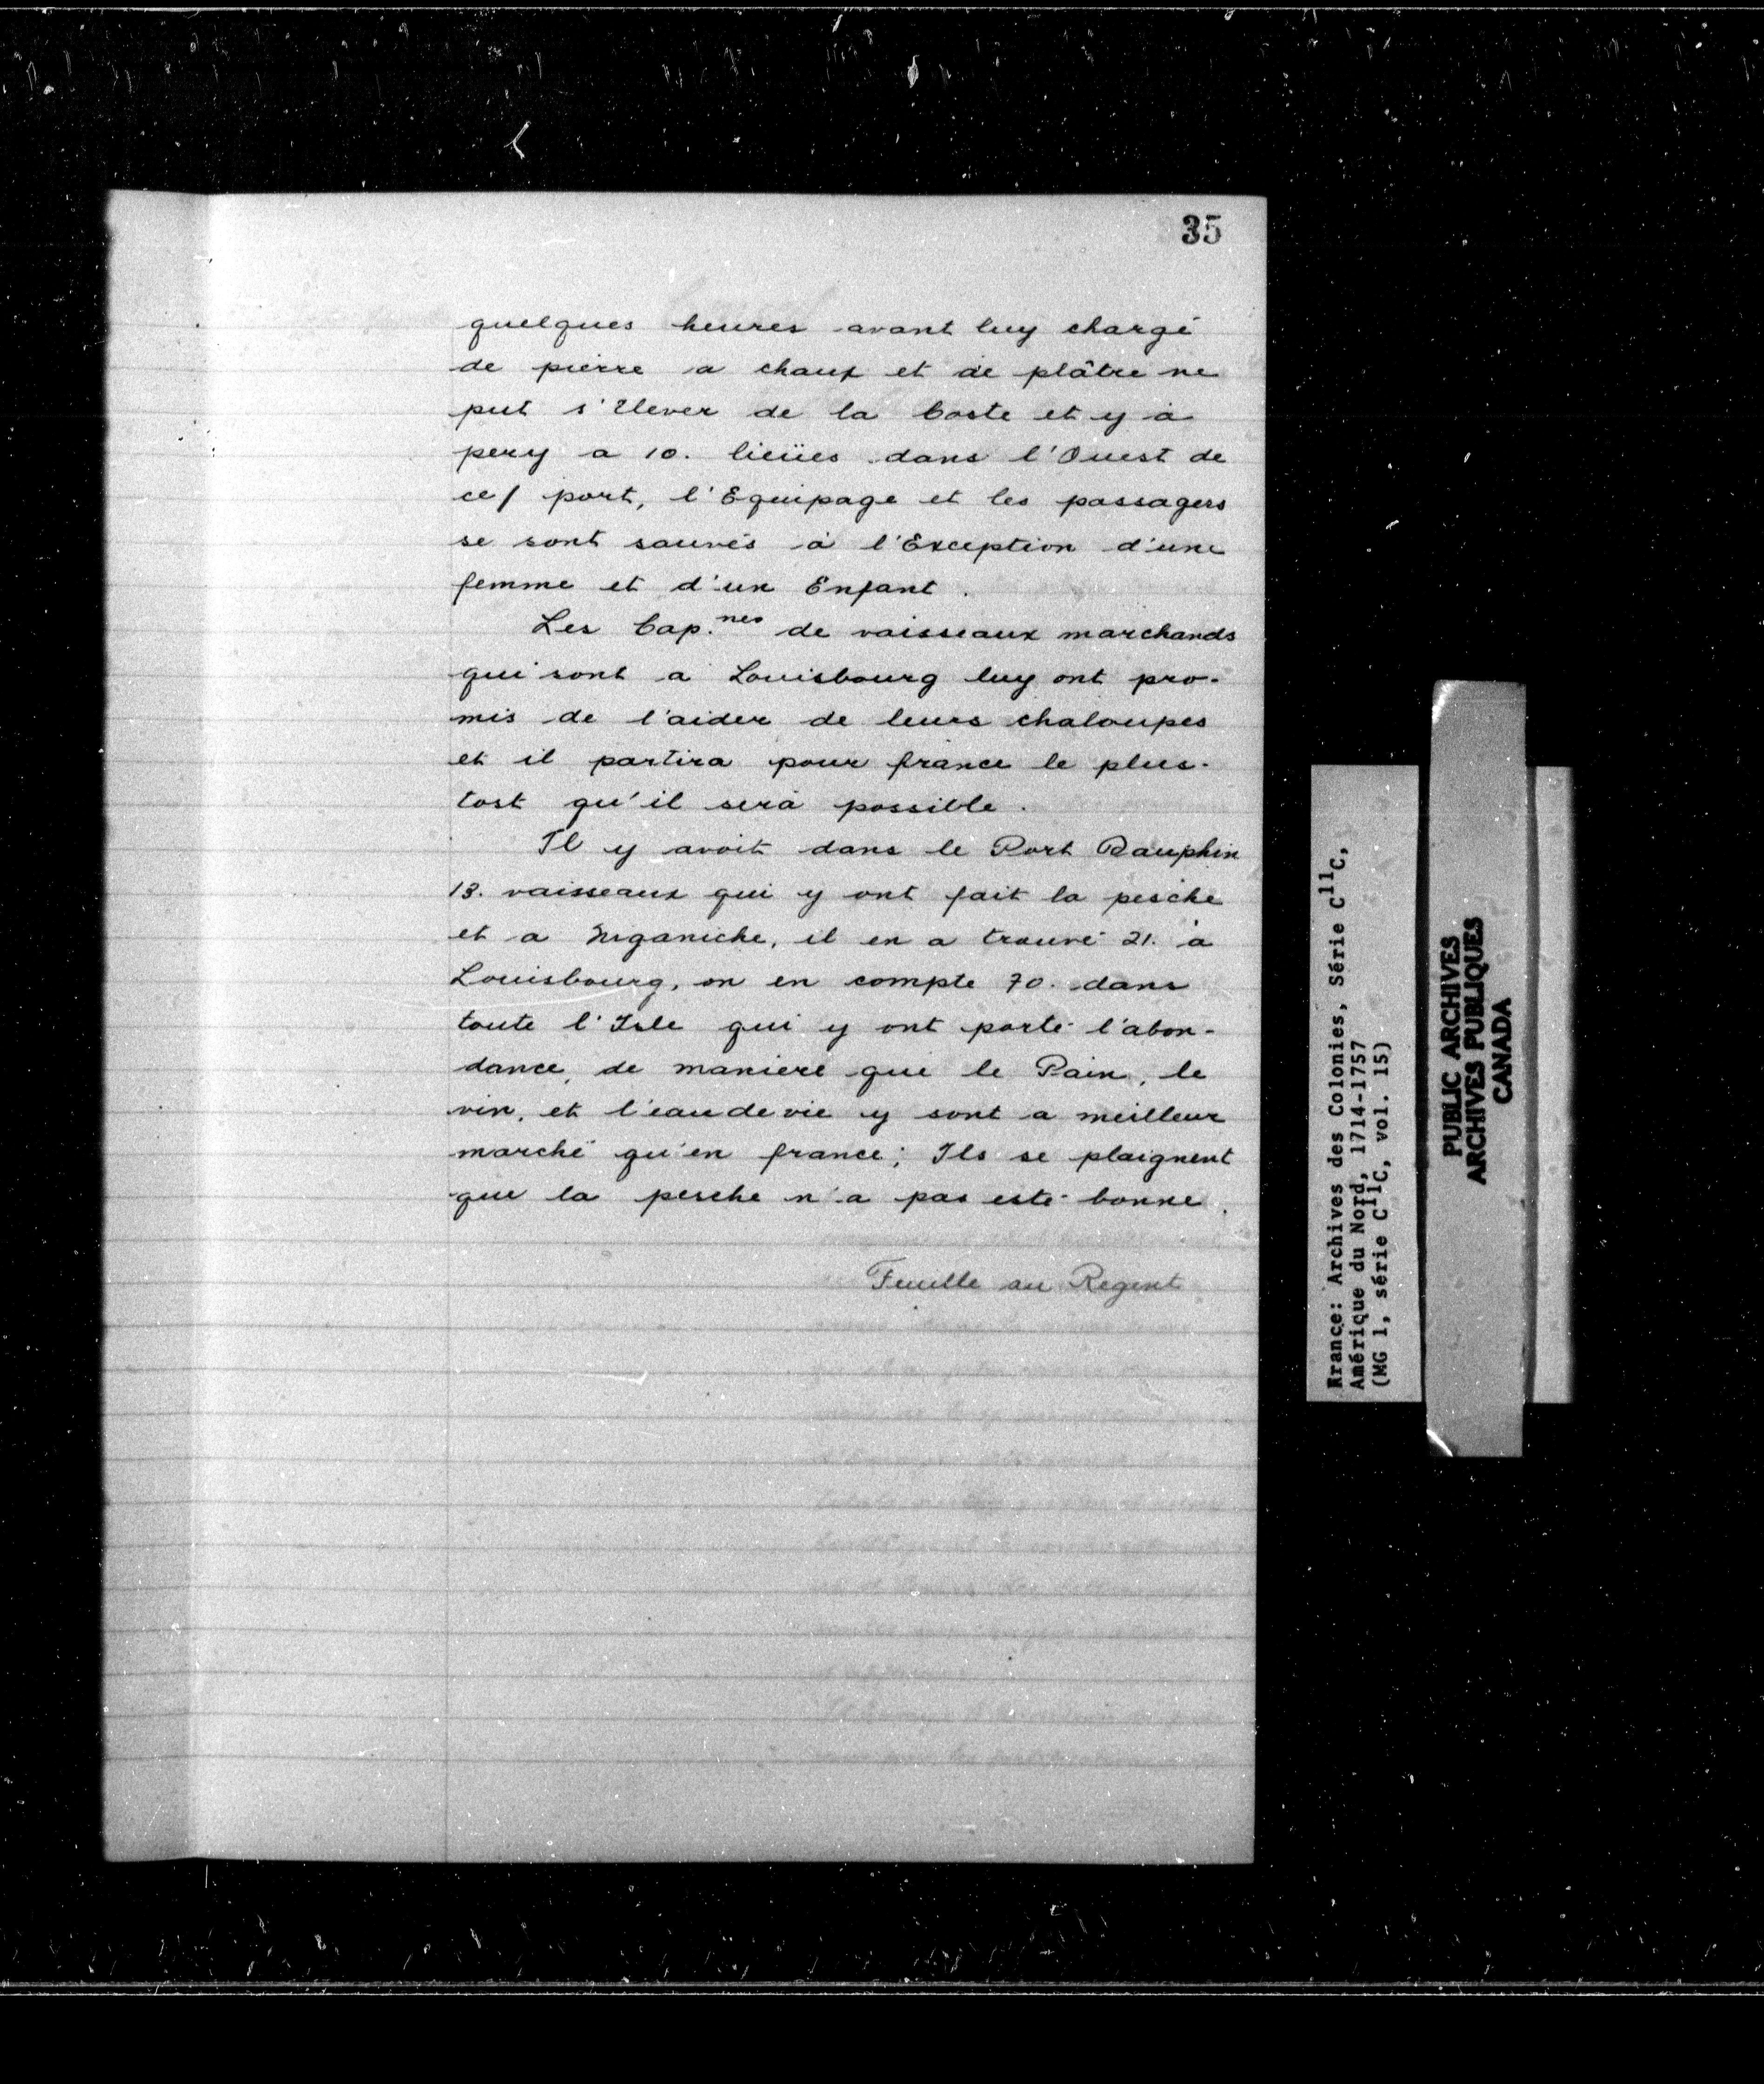 35
quelques heures avant luy chargé
de pierre a chaux et de plâtre ne
put s'Elever de la Coste et y à
pery a 10. lieües dans l'Ouest de
ce/ port, l'Equipage et les passagers
se sont sauvés à l'Exception d'une
femme et d'un Enfant.
Les Cap.nes de vaisseaux marchands
qui sont a Louisbourg luy ont pro-
mis de l'aider de leurs chaloupes
et il partira pour france le plus-
tost qu'il sera possible.
Il y avoit dans le Port Dauphin
13. vaisseaux qui y ont fait la pesche
et a Niganiche, il en a trouvé 21. à
Louisbourg, on en compte 70. dans
toute l'Isle qui y ont porté l'abon-
dance, de maniere que le Pain, le
vin, et l'eau de vie y sont a meilleur
marché qu'en france; Ils se plaignent
que la pesche n'a pas esté bonne.
Feuille au Regent
France: Archives des Colonies, Série C11C,
Amérique du Nord, 1714-1757
(MG 1, série C11C, vol. 15)
PUBLIC ARCHIVES
ARCHIVES PUBLIQUES
CANADA